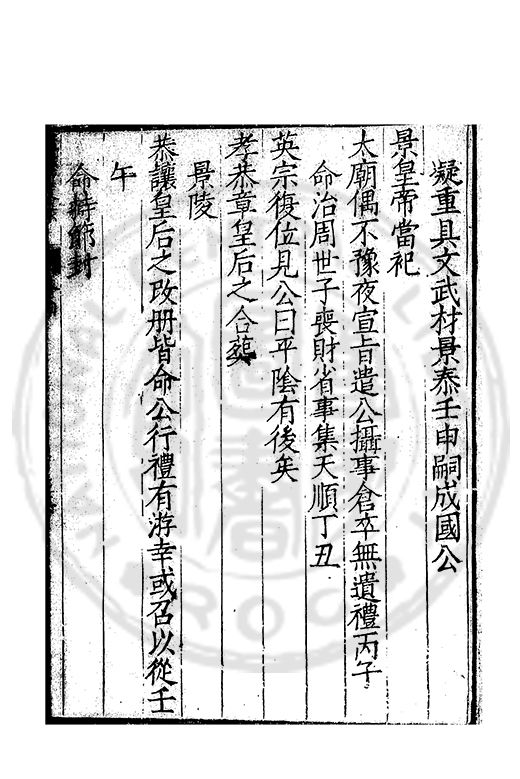 凝重具文武材景泰壬申嗣成國公
景皇帝當祀
太廟偶不豫夜宣旨遣公攝事倉卒無遺禮丙子
命治周世子喪財省事集天順丁丑
英宗復位見公曰平陰有後矣
孝恭章皇后之合葬
景陵
恭讓皇后之改册皆命公行禮有游幸或召以從壬
午
命持節封